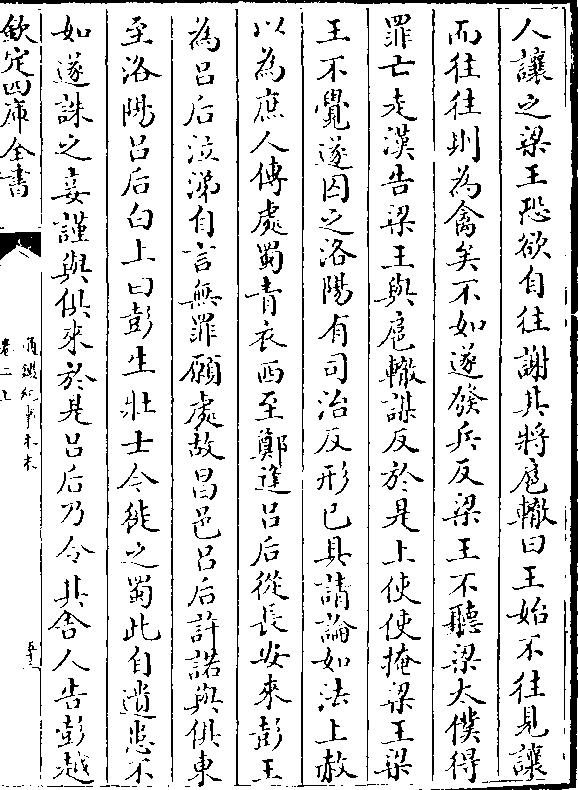 人讓之梁王恐欲自往謝其將扈轍曰王始不往見讓
而往往則為禽矣不如遂發兵反梁王不聽梁太僕得
罪亡走漢告梁王與扈轍謀反於是上使使掩梁王梁
王不覺遂囚之洛陽有司治反形已具請論如法上赦
以為庶人傳處蜀青衣西至鄭逢呂后從長安來彭王
為呂后泣涕自言無罪願處故昌邑呂后許諾與俱東
至洛陽呂后白上曰彭生壯士今徙之蜀此自遺患不
如遂誅之妾謹與俱來於是呂后乃令其舍人告彭越
欽定四庫全書
通鑑紀事本末
卷二上